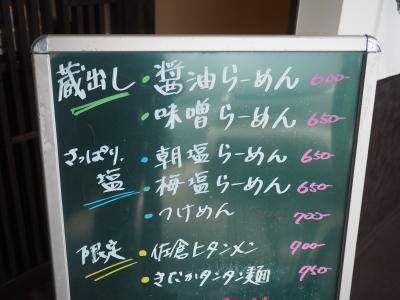 蔵出し・醤油らーめん 600-
・味噌らーめん 650-
さっぱり、・朝塩らーめん 650-
塩・梅塩らーめん 650-
・つけめん 700-
限定・佐倉ヒタンメン 900-
・さだかタンタン麺 950-